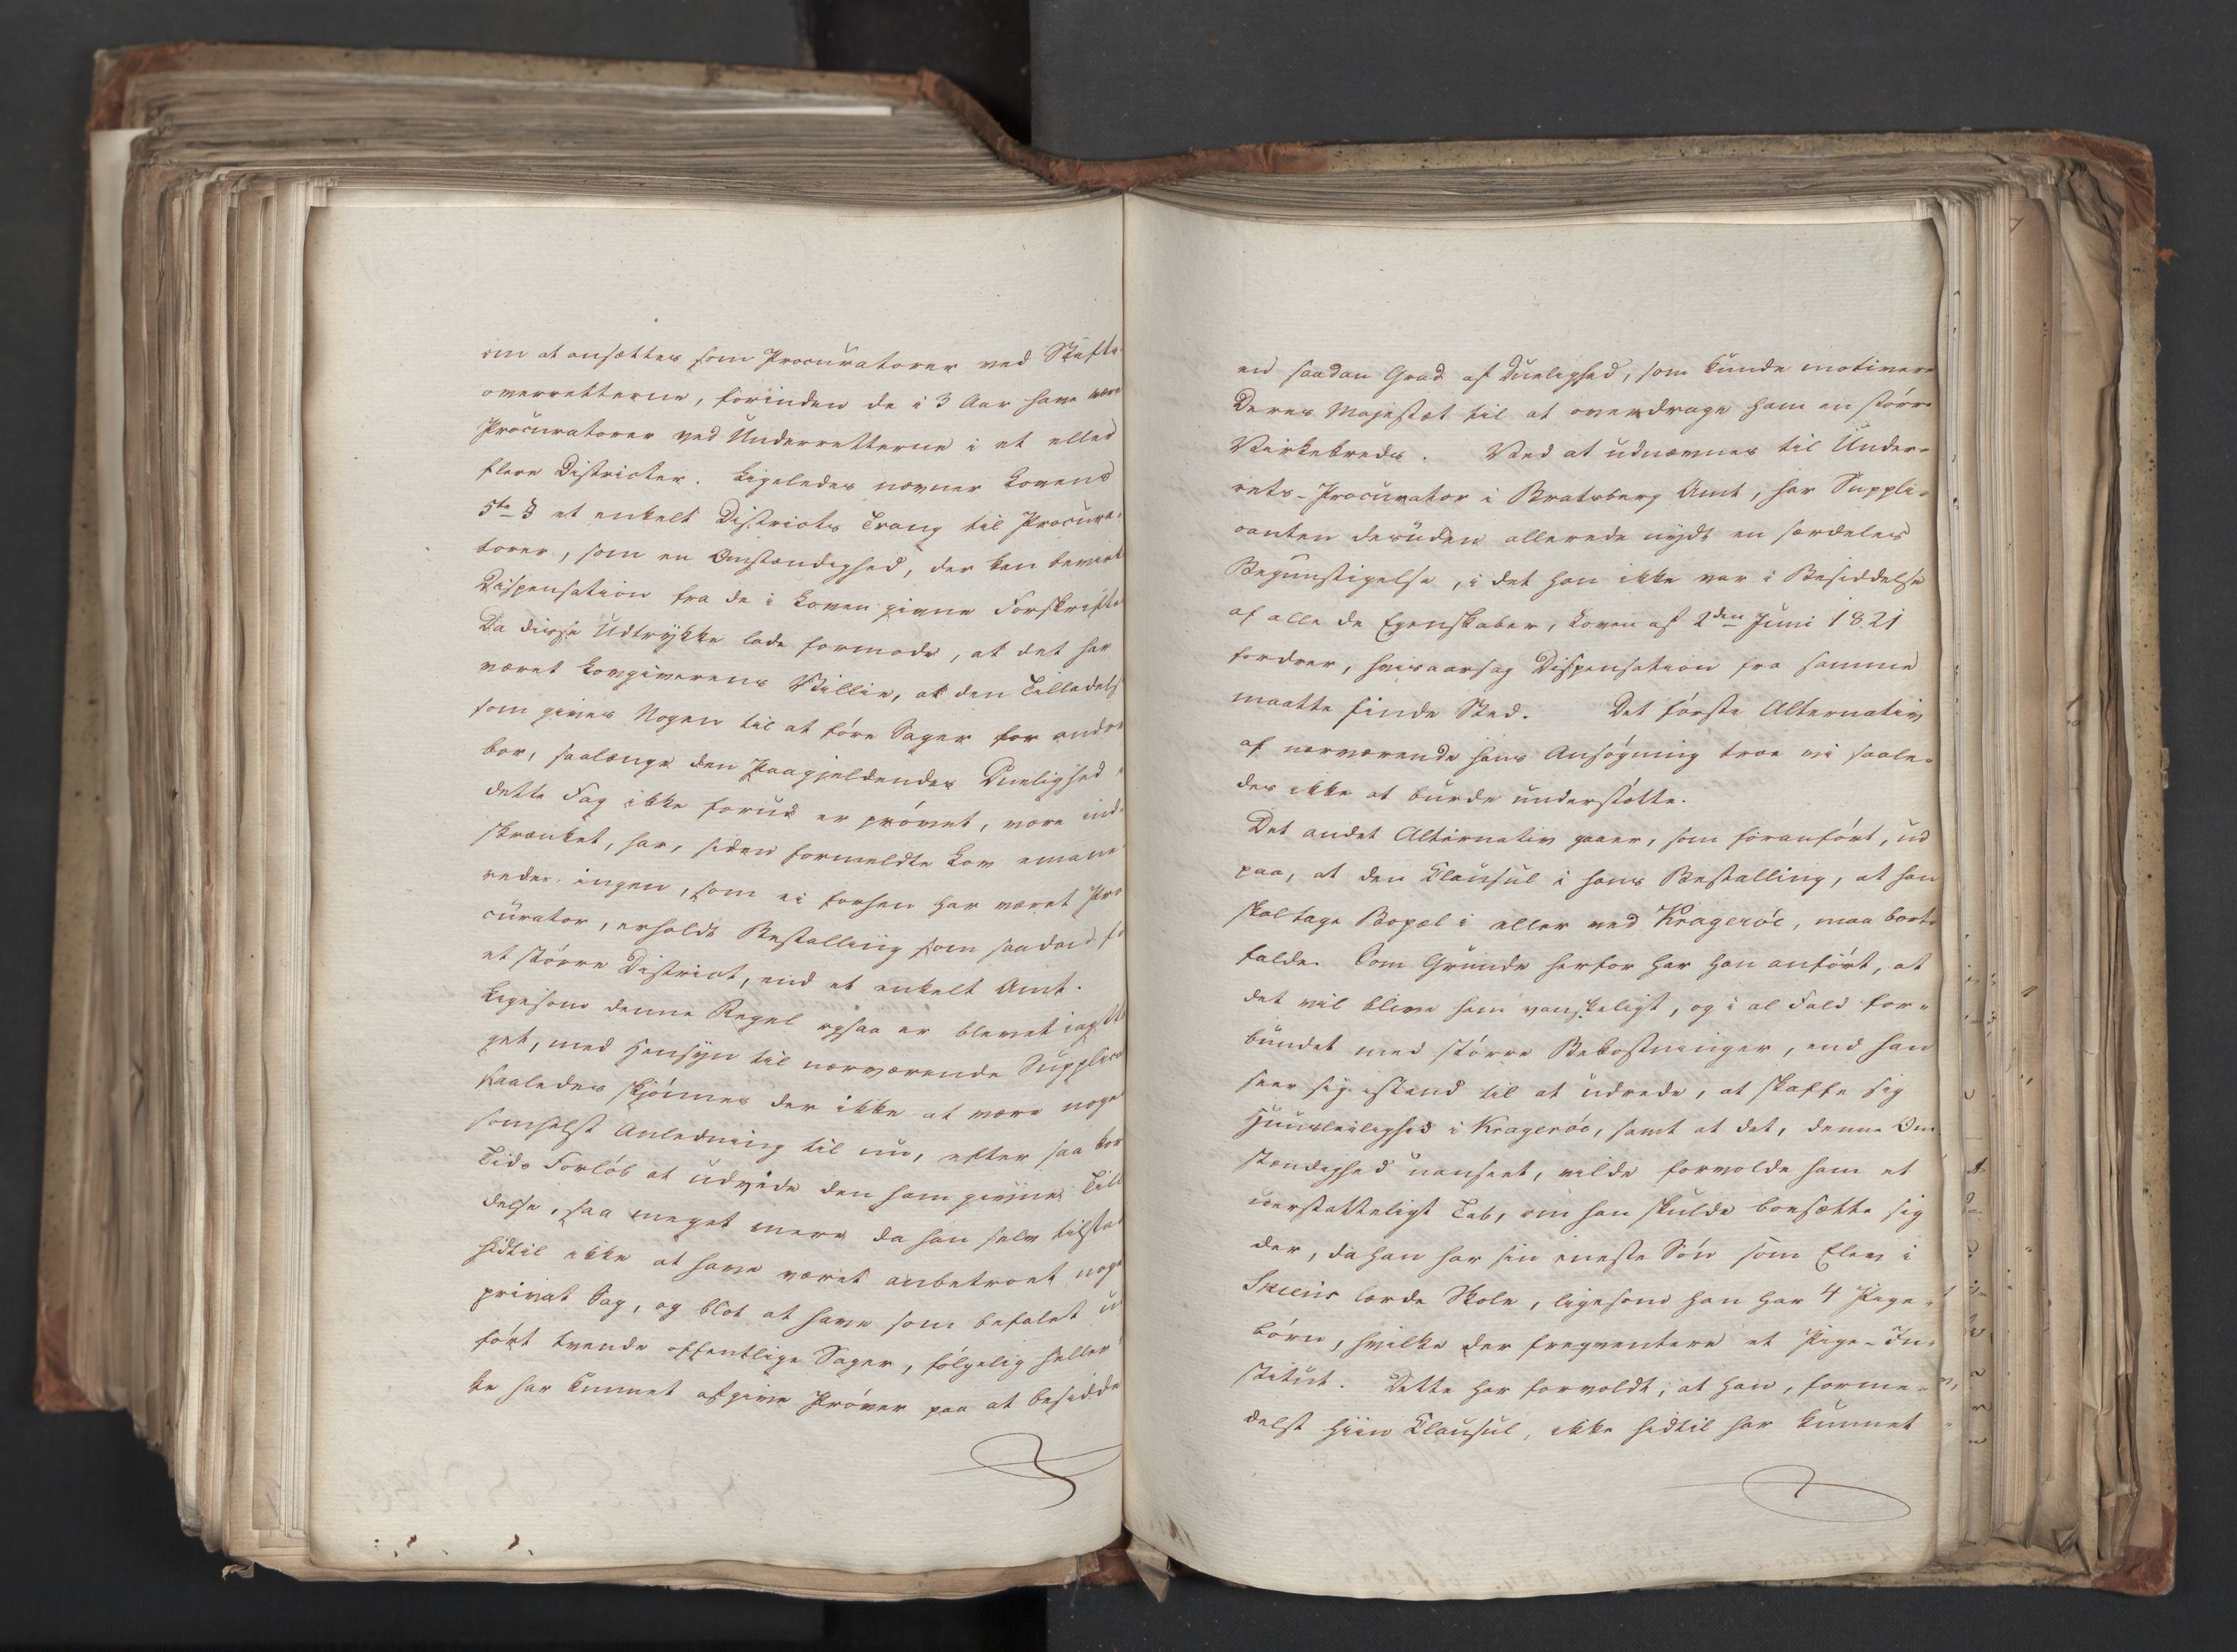 om at ansættes som Procuratorer ved Stifts-
overretterne, forinden de i 3 Aar have været
Procuratorer ved Underretterne i et eller
flere Districter. Ligeledes nævner Lovens
5te § et enkelt Districts Trang til Procura-
torer, som en Omstændighed, der kan bevirke
Dispensation fra de i Loven givne Forskrifter
Da disse Udtrykke lade formode, at det har
været Lovgiverens Villie, at den Tilladelse
som gives Nogen til at føre Sager for andre
bør, saalænge den Paagjeldendes Duelighed i
dette Fag ikke forud er prøvet, være ind-
skrænket, har, siden formeldte Lov emane-
redes ingen, som ei forhen har været Pro-
curator, erholdt Bestalling som saadan for
et større District, end et enkelt Amt.
Ligesom denne Regel ogsaa er blevet iagtta-
get, med Hensyn til nærværende Supplicant
saaledes skjønnes der ikke at være nogen
somhelst Anledning til nu, efter saa kort
Tids Forløb at udvide den ham givne Tilla-
delse, saa meget mere da han selv tilstaar
hidtil ikke at have været anbetroet nogen
privat Sag, og blot at have som befalet ud-
ført tvende offentlige Sager, følgelig heller ik-
ke har kunnet afgive Prøver paa at besidde
en saadan Grad af Duelighed, som kunde motivere
Deres Majestæt til at overdrage ham en større
Virkekreds. Ved at udnævnes til Under-
rets-Procurator i Bratsberg Amt, har Suppli-
canten desuden allerede nydt en særdeles
Begunstigelse, i det han ikke var i Besiddelse
af alle de Egenskaber, Loven af 2den Juni 1821
fordrer, hvisaarsag Dispensation fra samme
maatte finde Sted. Det første Alternativ
af nærværende hans Ansøgning troe vi saale-
des ikke at burde understøtte.
Det andet Alternativ gaaer, som foranført, ud
paa, at den Clausul i hans Bestalling, at han
skal tage Bopæl i eller ved Kragerøe, maa bort-
falde. Som Grunde herfor har han anført, at
det vil blive ham vanskeligt, og i al Fald for-
bundet med større Bekostninger, end han
seer sig istand til at udrede, at skaffe sig
Huusleilighed i Kragerøe, samt at det, denne Om-
stændighed uanseet, vilde forvolde ham et
uerstatteligt Tab, om han skulde bosætte sig
der, da han har sin eneste Søn som Elev i
Skiens lærde Skole, ligesom han har 4 Pige-
børn, hvilke der freqventere et Pige-In-
stitut. Dette har forvoldt, at han, forme-
delst hiin Clausul, ikke hidtil har kunnet